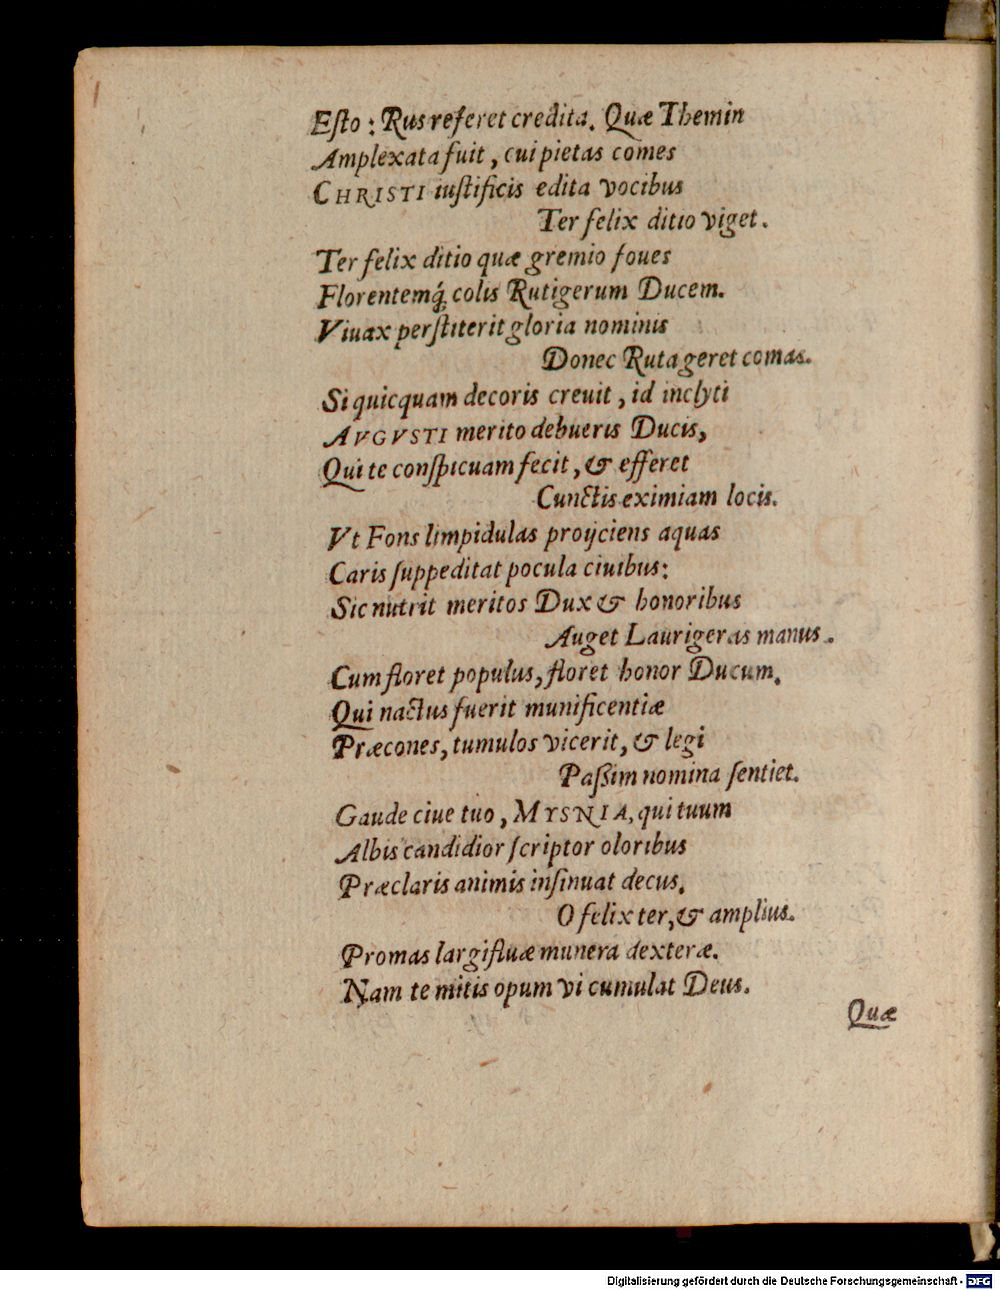 Eſto: Rus referet credita. Quæ Themin
Amplexata fuit, cui pietas comes
CHRISTI iuſtificis edita vocibus
Ter felix ditio viget.
Ter felix ditio quæ gremio foues
Florentemq́; colis Rutigerum Ducem.
Viuax perſtiterit gloria nominis
Donec Ruta geret comas.
Si quicquam decoris creuit, id inclyti
AVGVSTI merito debueris Ducis,
Qui te conſpicuam fecit, & efferet
Cunctis eximiam locis.
Vt Fons limpidulas proijciens aquas
Caris ſuppeditat pocula ciuibus:
Sic nutrit meritos Dux & honoribus
Auget Laurigeras manus.
Cum floret populus, floret honor Ducum.
Qui nactus fuerit munificentiæ
Præcones, tumulos vicerit, & legi
Paſſim nomina ſentiet.
Gaude ciue tuo, MYSNIA, qui tuum
Albis candidior ſcriptor oloribus
Præclaris animis inſinuat decus.
O felix ter, & amplius.
Promas largifluæ munera dexteræ.
Nam te mitis opum vi cumulat Deus.
Quæ
Digitalisierung gefördert durch die Deutsche Forschungsgemeinschaft - DFG